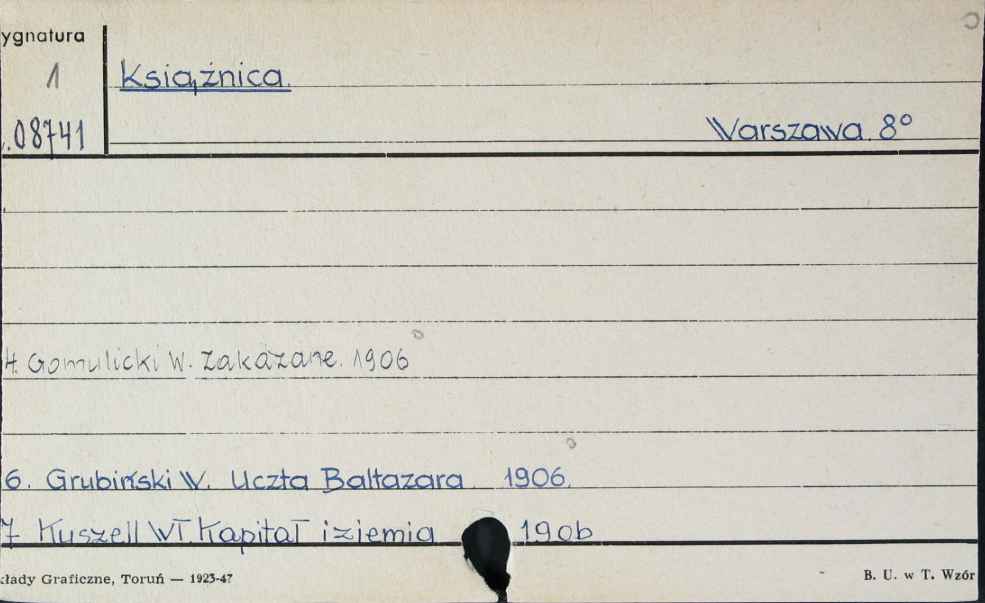 ygnatura
1 Książnica.
.08741 Warszawa. 8°
4. Gomulicki W. Zakazane. 1906
6. Grubiński W. Uczta Baltazara 1906.
7 Kuszell Wł Kapitał i ziemia 1906
kłady Graficzne, Toruń — 1923-47 B. U. w T. Wzór